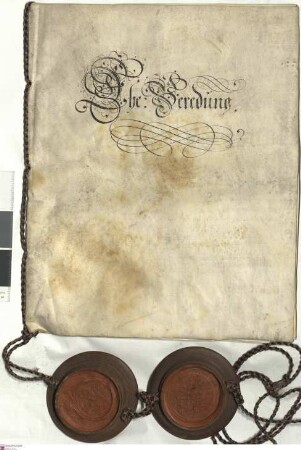 Ehe: Beredung.